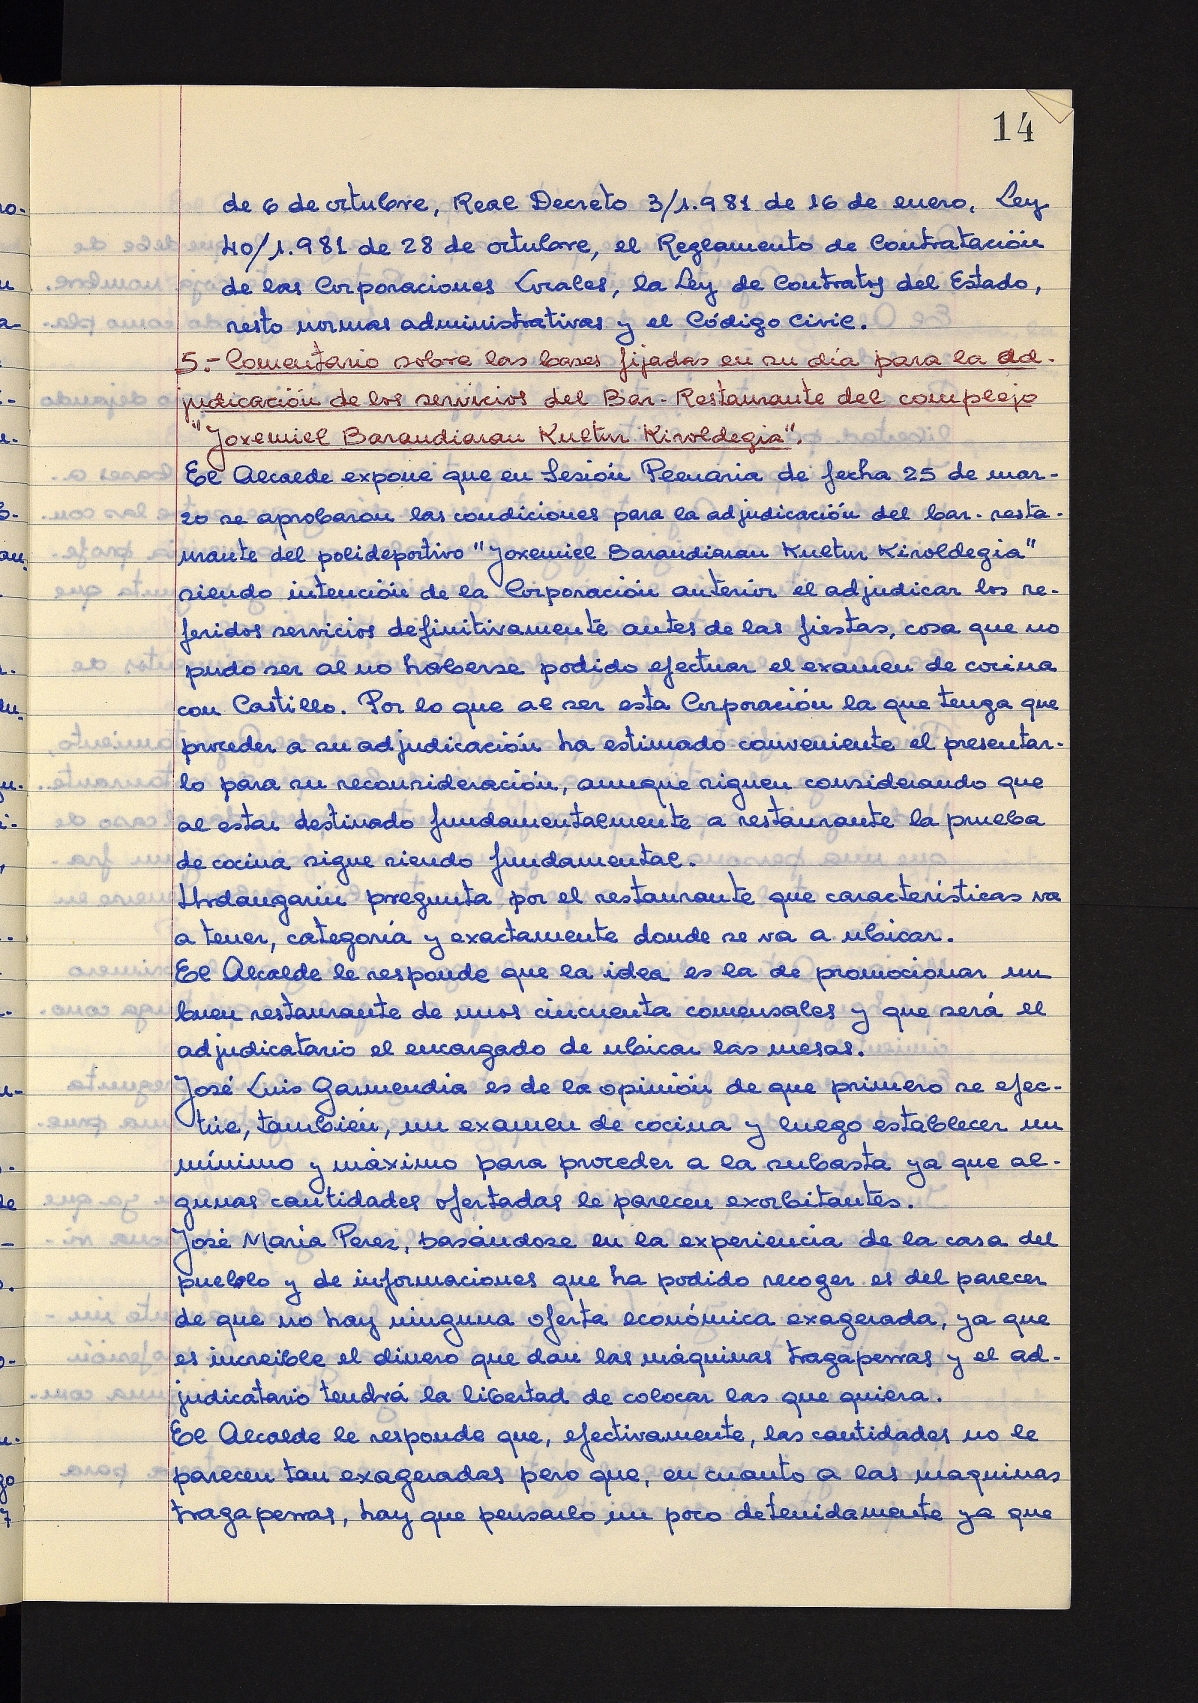 14
de 6 de octubre, Real Decreto 3/1.981 de 16 de enero, Ley
40/1.981 de 28 de octubre, el Reglamento de Contratación
de las Corporaciones Locales, la Ley de Contratos del Estado,
resto normas administrativas y el Código Civil.
5.- Comentario sobre las bases fijadas en su día para la ad-
judicación de los servicios del Bar-Restaurante del complejo
"Joxemiel Barandiaran Kultur Kiroldegia".
El Alcalde expone que en Sesión Plenaria de fecha 25 de mar-
zo se aprobaron las condiciones para la adjudicación del bar-resta-
urante del polideportivo "Joxemiel Barandiaran Kultur Kiroldegia"
siendo intención de la Corporación anterior el adjudicar los re-
feridos servicios definitivamente antes de las fiestas, cosa que no
pudo ser al no haberse podido efectuar el examen de cocina
con Castillo. Por lo que al ser esta Corporación la que tenga que
proceder a su adjudicación ha estimado conveniente el presentar-
lo para su reconsideración, aunque siguen considerando que
al estar destinado fundamentalmente a restaurante la prueba
de cocina sigue siendo fundamental.
Urdangarin pregunta por el restaurante que características va
a tener, categoría y exactamente donde se va a ubicar.
El Alcalde le responde que la idea es la de promocionar un
buen restaurante de unos cincuenta comensales y que será el
adjudicatario el encargado de ubicar las mesas.
José Luis Garmendia es de la opinión de que primero se efec-
túe, también, un examen de cocina y luego establecer un
mínimo y máximo para proceder a la subasta ya que al-
gunas cantidades ofertadas le parecen exorbitantes.
José María Perez, basándose en la experiencia de la casa del
pueblo y de informaciones que ha podido recoger es del parecer
de que no hay ninguna oferta económica exagerada, ya que
es increible el dinero que dan las máquinas tragaperras y el ad-
judicatario tendrá la libertad de colocar las que quiera.
El Alcalde le responde que, efectivamente, las cantidades no le
parecen tan exageradas pero que, en cuanto a las maquinas
tragaperras, hay que pensarlo un poco detenidamente ya que